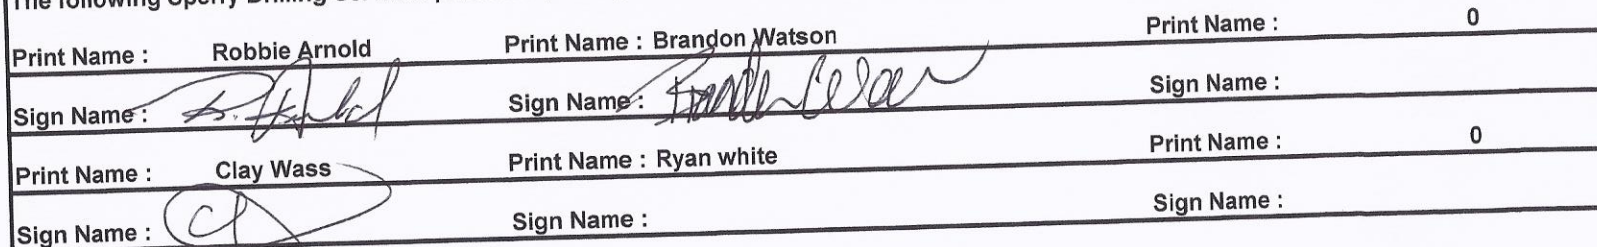 The following Sperry Drilling
Print Name : Robbie Arnold Print Name : Brandon Watson Print Name : 0
Sign Name : Sign Name : Sign Name :
Print Name : Clay Wass Print Name : Ryan white Print Name : 0
Sign Name : Sign Name : Sign Name :